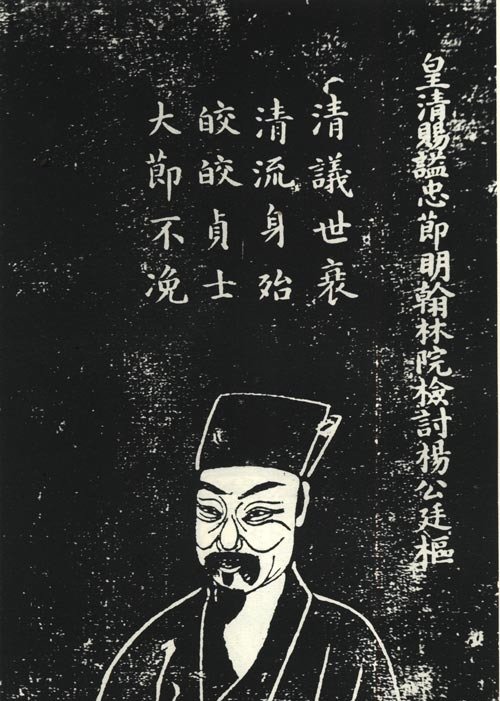 皇清賜謚忠節明翰林院檢討楊公廷樞
清議世衰
清流身殆
皎皎貞士
大節不浼